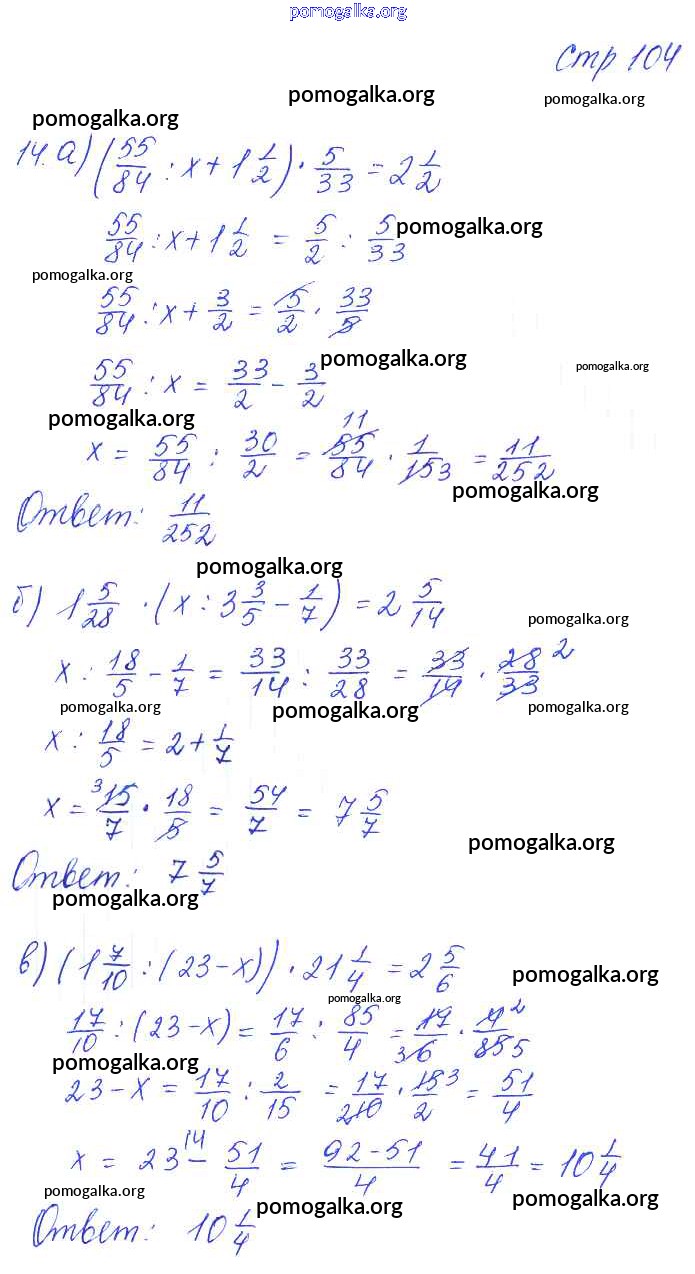 pomogalka.org
стр 104
pomogalka.org pomogalka.org
pomogalka.org
14. а) (55/84 : x + 1 1/2) · 5/33 = 2 1/2
55/84 : x + 1 1/2 = 5/2 : 5/33
pomogalka.org
pomogalka.org
55/84 : x + 3/2 = 5/2 · 33/5
pomogalka.org pomogalka.org
55/84 : x = 33/2 - 3/2
pomogalka.org
x = 55/84 : 30/2 = 11 55/84 · 1/15 3 = 11/252
pomogalka.org
Ответ: 11/252
pomogalka.org
б) 1 5/28 · (x : 3 3/5 - 1/7) = 2 5/14
pomogalka.org
x : 18/5 - 1/7 = 33/14 : 33/28 = 33/14 · 28/33 2
pomogalka.org pomogalka.org pomogalka.org
x : 18/5 = 2 + 1/7
x = 3 15/7 · 18/5 = 54/7 = 7 5/7
pomogalka.org
Ответ: 7 5/7
pomogalka.org
в) (1 7/10 : (23 - x)) · 21 1/4 = 2 5/6
pomogalka.org
pomogalka.org
17/10 : (23 - x) = 17/6 : 85/4 = 17/3 6 · 4 2/85 5
pomogalka.org
23 - x = 17/10 : 2/15 = 17/2 10 · 15 3/2 = 51/4
x = 23 14 - 51/4 = 92 - 51/4 = 41/4 = 10 1/4
pomogalka.org pomogalka.org
pomogalka.org
Ответ: 10 1/4